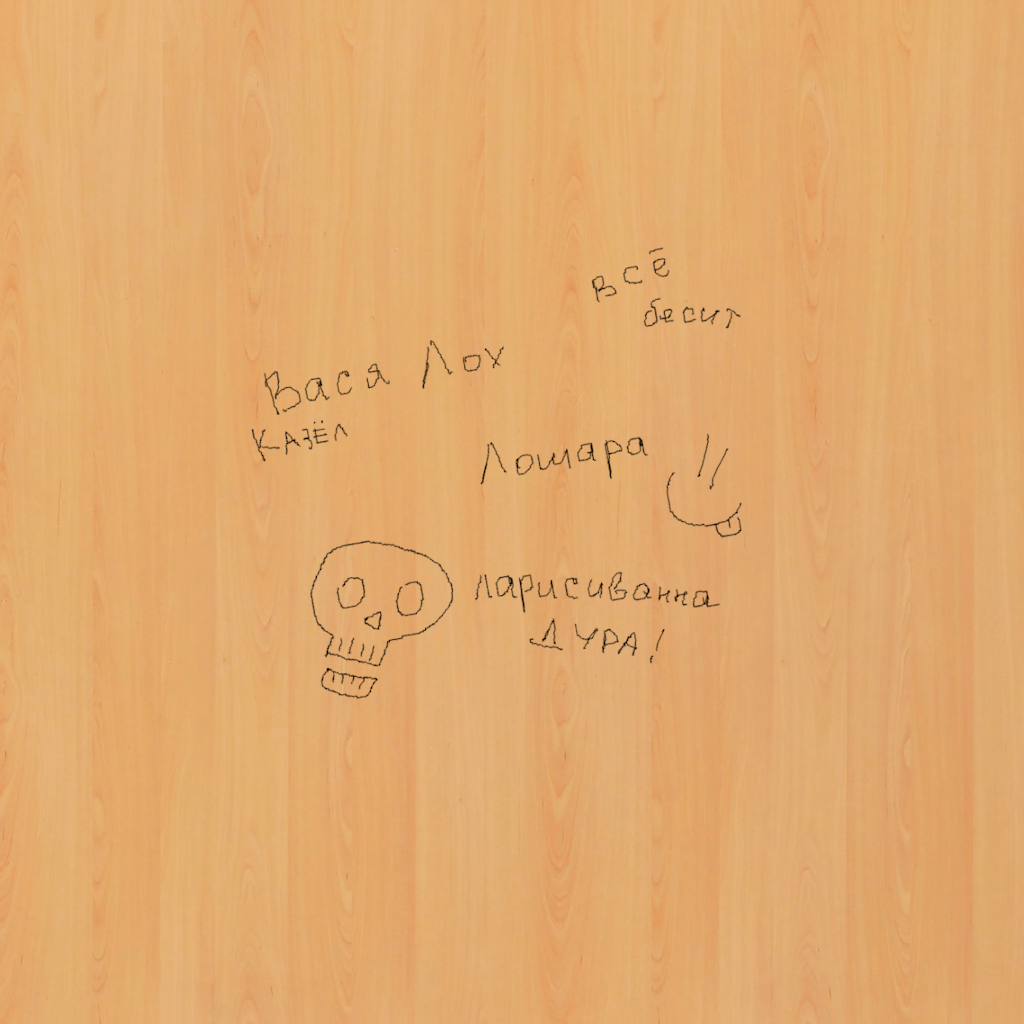 всё
бесит
Вася Лох
КАЗЁЛ
Лошара
ларисиванна
ДУРА!